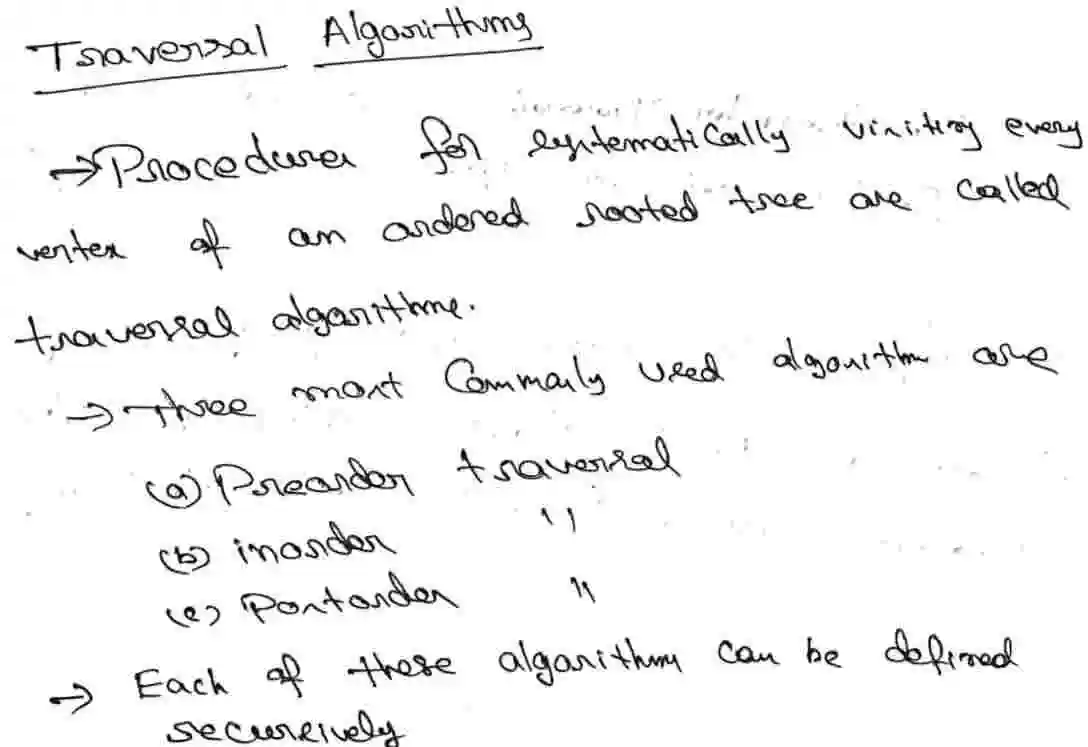 Traversal Algorithms
→ Procedures for systematically visiting every
vertex of an ordered rooted tree are called
traversal algorithms.
→ Three most Commonly used algorithm are
(a) Preorder traversal
(b) inorder "
(c) Postorder "
→ Each of these algorithms can be defined
recursively